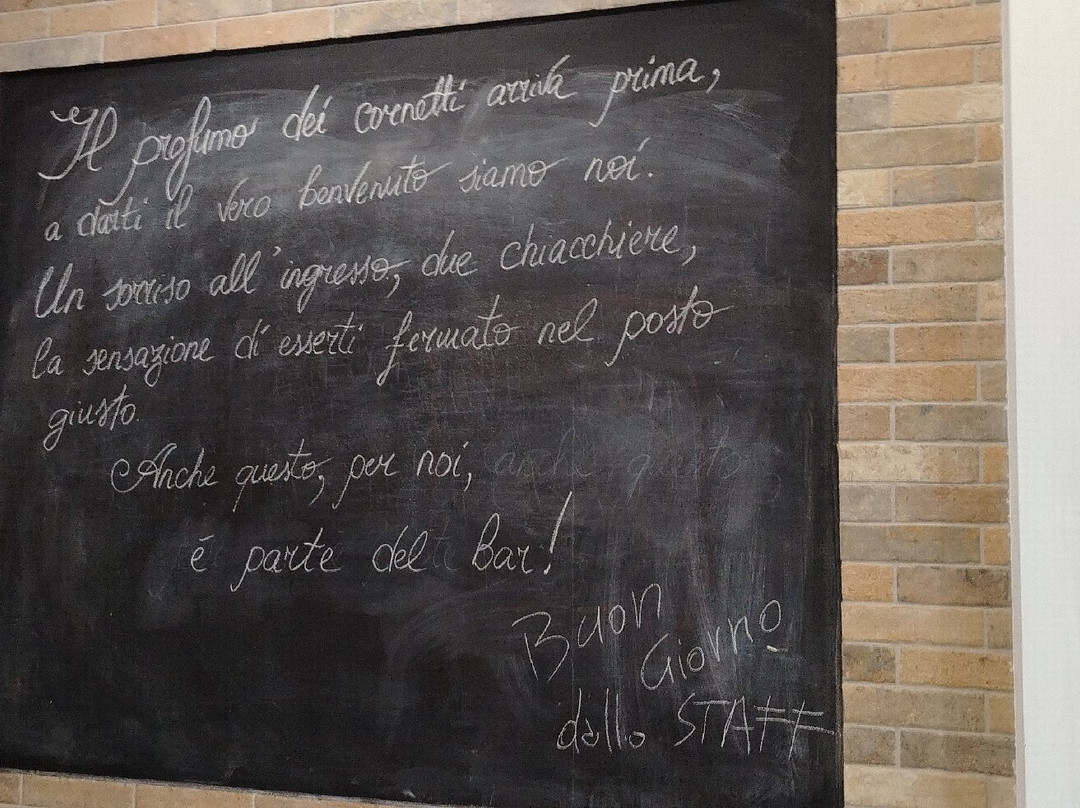 Il profumo dei cornetti arriva prima,
a darti il vero benvenuto siamo noi.
Un sorriso all'ingresso, due chiacchiere,
la sensazione di esserti fermato nel posto
giusto.
Anche questo, per noi, anche questo
è parte del bar!
Buon
Giorno
dallo STAFF